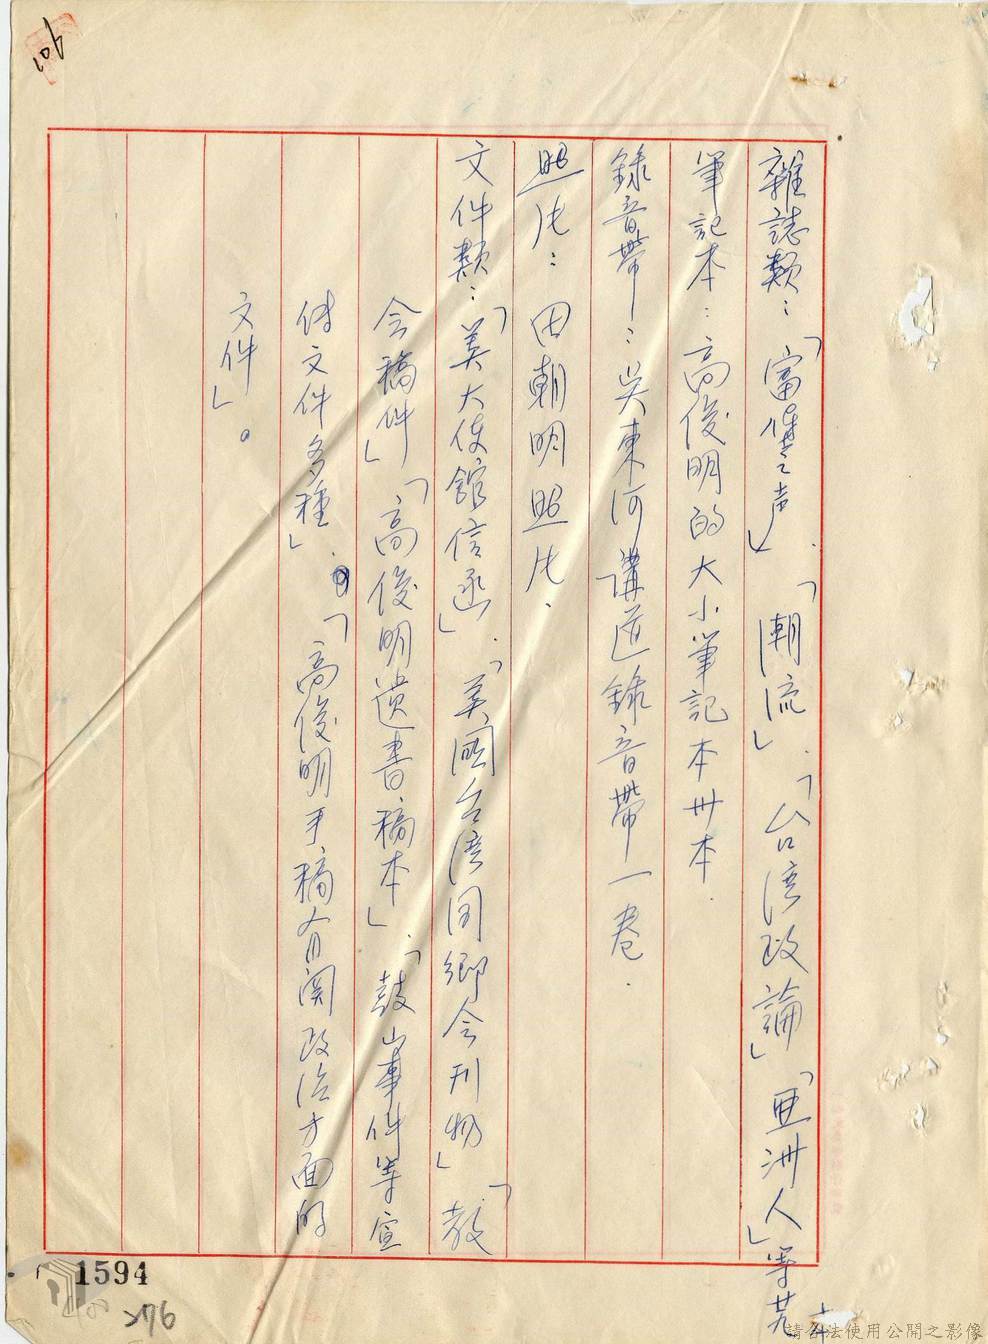 106
雜誌類：「富堡之声」．「潮流」．「台湾政論」「亜洲人」等共
筆記本：高俊明的大小筆記本卅本．
錄音帶：吳東河講道錄音帶一卷．
照片：田朝明照片．
文件類：「美大使館信函」．「美國台湾同鄉会刊物」「教
会稿件」「高俊明遺書稿本」．「鼓山事件等宣
传文件多種」．「高俊明手稿有関政治方面的
文件」。
1594
276
請合法使用公開之影像